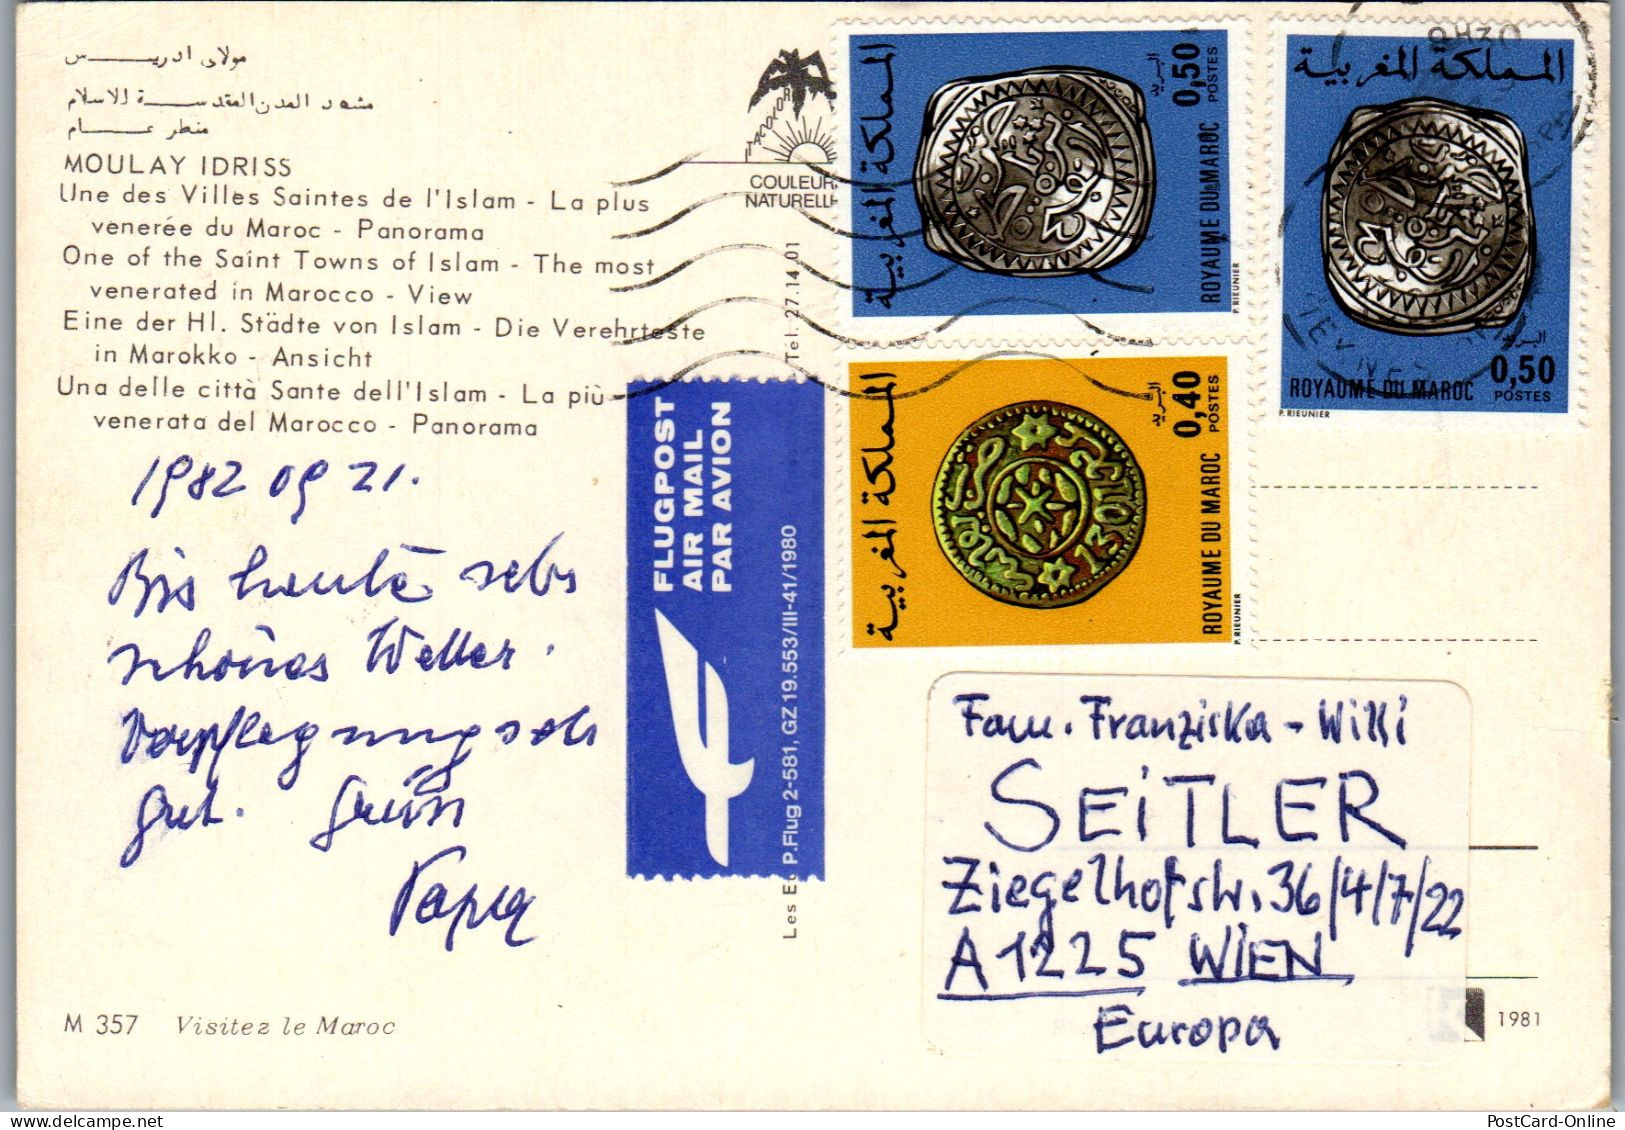 مولاي ادريس
مشهد المدن المقدسة للاسلام
منظر عام
MOULAY IDRISS
Une des Villes Saintes de l'Islam - La plus
venerée du Maroc - Panorama
One of the Saint Towns of Islam - The most
venerated in Marocco - View
Eine der Hl. Städte von Islam - Die Verehrteste
in Marokko - Ansicht
Una delle città Sante dell'Islam - La più
venerata del Marocco - Panorama
1982 09 21.
Bis heute sehr
schönes Wetter.
Verpflegung sehr
gut. Grüsse
Papa
M 357 Visitez le Maroc
COULEUR
NATURELLE
Tel. 27.14.01
Les E
FLUGPOST
AIR MAIL
PAR AVION
P.Flug 2-581, GZ 19.553/III-41/1980
المملكة المغربية
البريد
0,50
POSTES
ROYAUME DU MAROC
P. RIEUNIER
المملكة المغربية
البريد
0,50
POSTES
ROYAUME DU MAROC
P. RIEUNIER
المملكة المغربية
البريد
0,40
POSTES
ROYAUME DU MAROC
P. RIEUNIER
1301
Fam. Franziska - Willi
SEITLER
Ziegelhofstr. 36/4/7/22
A 1225 WIEN
Europa
1981
PostCard-Online